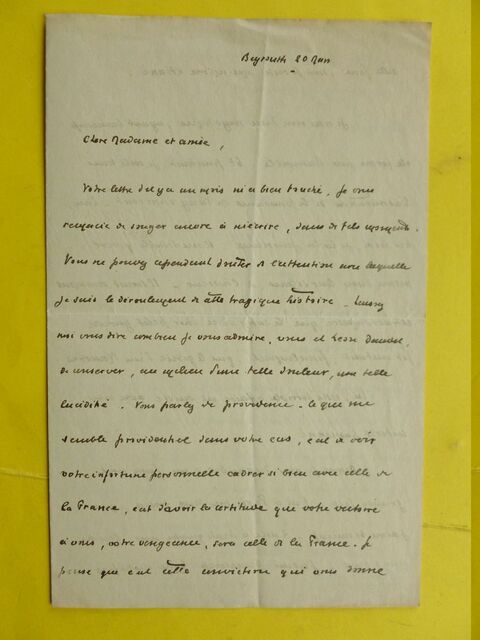 Beyrouth 20 Juin
Chère Madame et amie,
Votre lettre d'il y a un mois m'a bien touché, je vous
remercie de songer encore à m'écrire, dans de tels moments.
Vous ne pouvez cependant douter de l'attention avec laquelle
je suis le déroulement de cette tragique histoire. Laissez
moi vous dire combien je vous admire, vous et Léon Daudet,
de conserver, au milieu d'une telle douleur, une telle
lucidité. Vous parlez de providence - ce que me
semble providentiel dans votre cas, c'est de voir
votre infortune personnelle cadrer si bien avec celle de
la France, c'est d'avoir la certitude que votre victoire
à vous, votre vengeance, sera celle de la France. Je
pense que c'est cette conviction qui vous donne